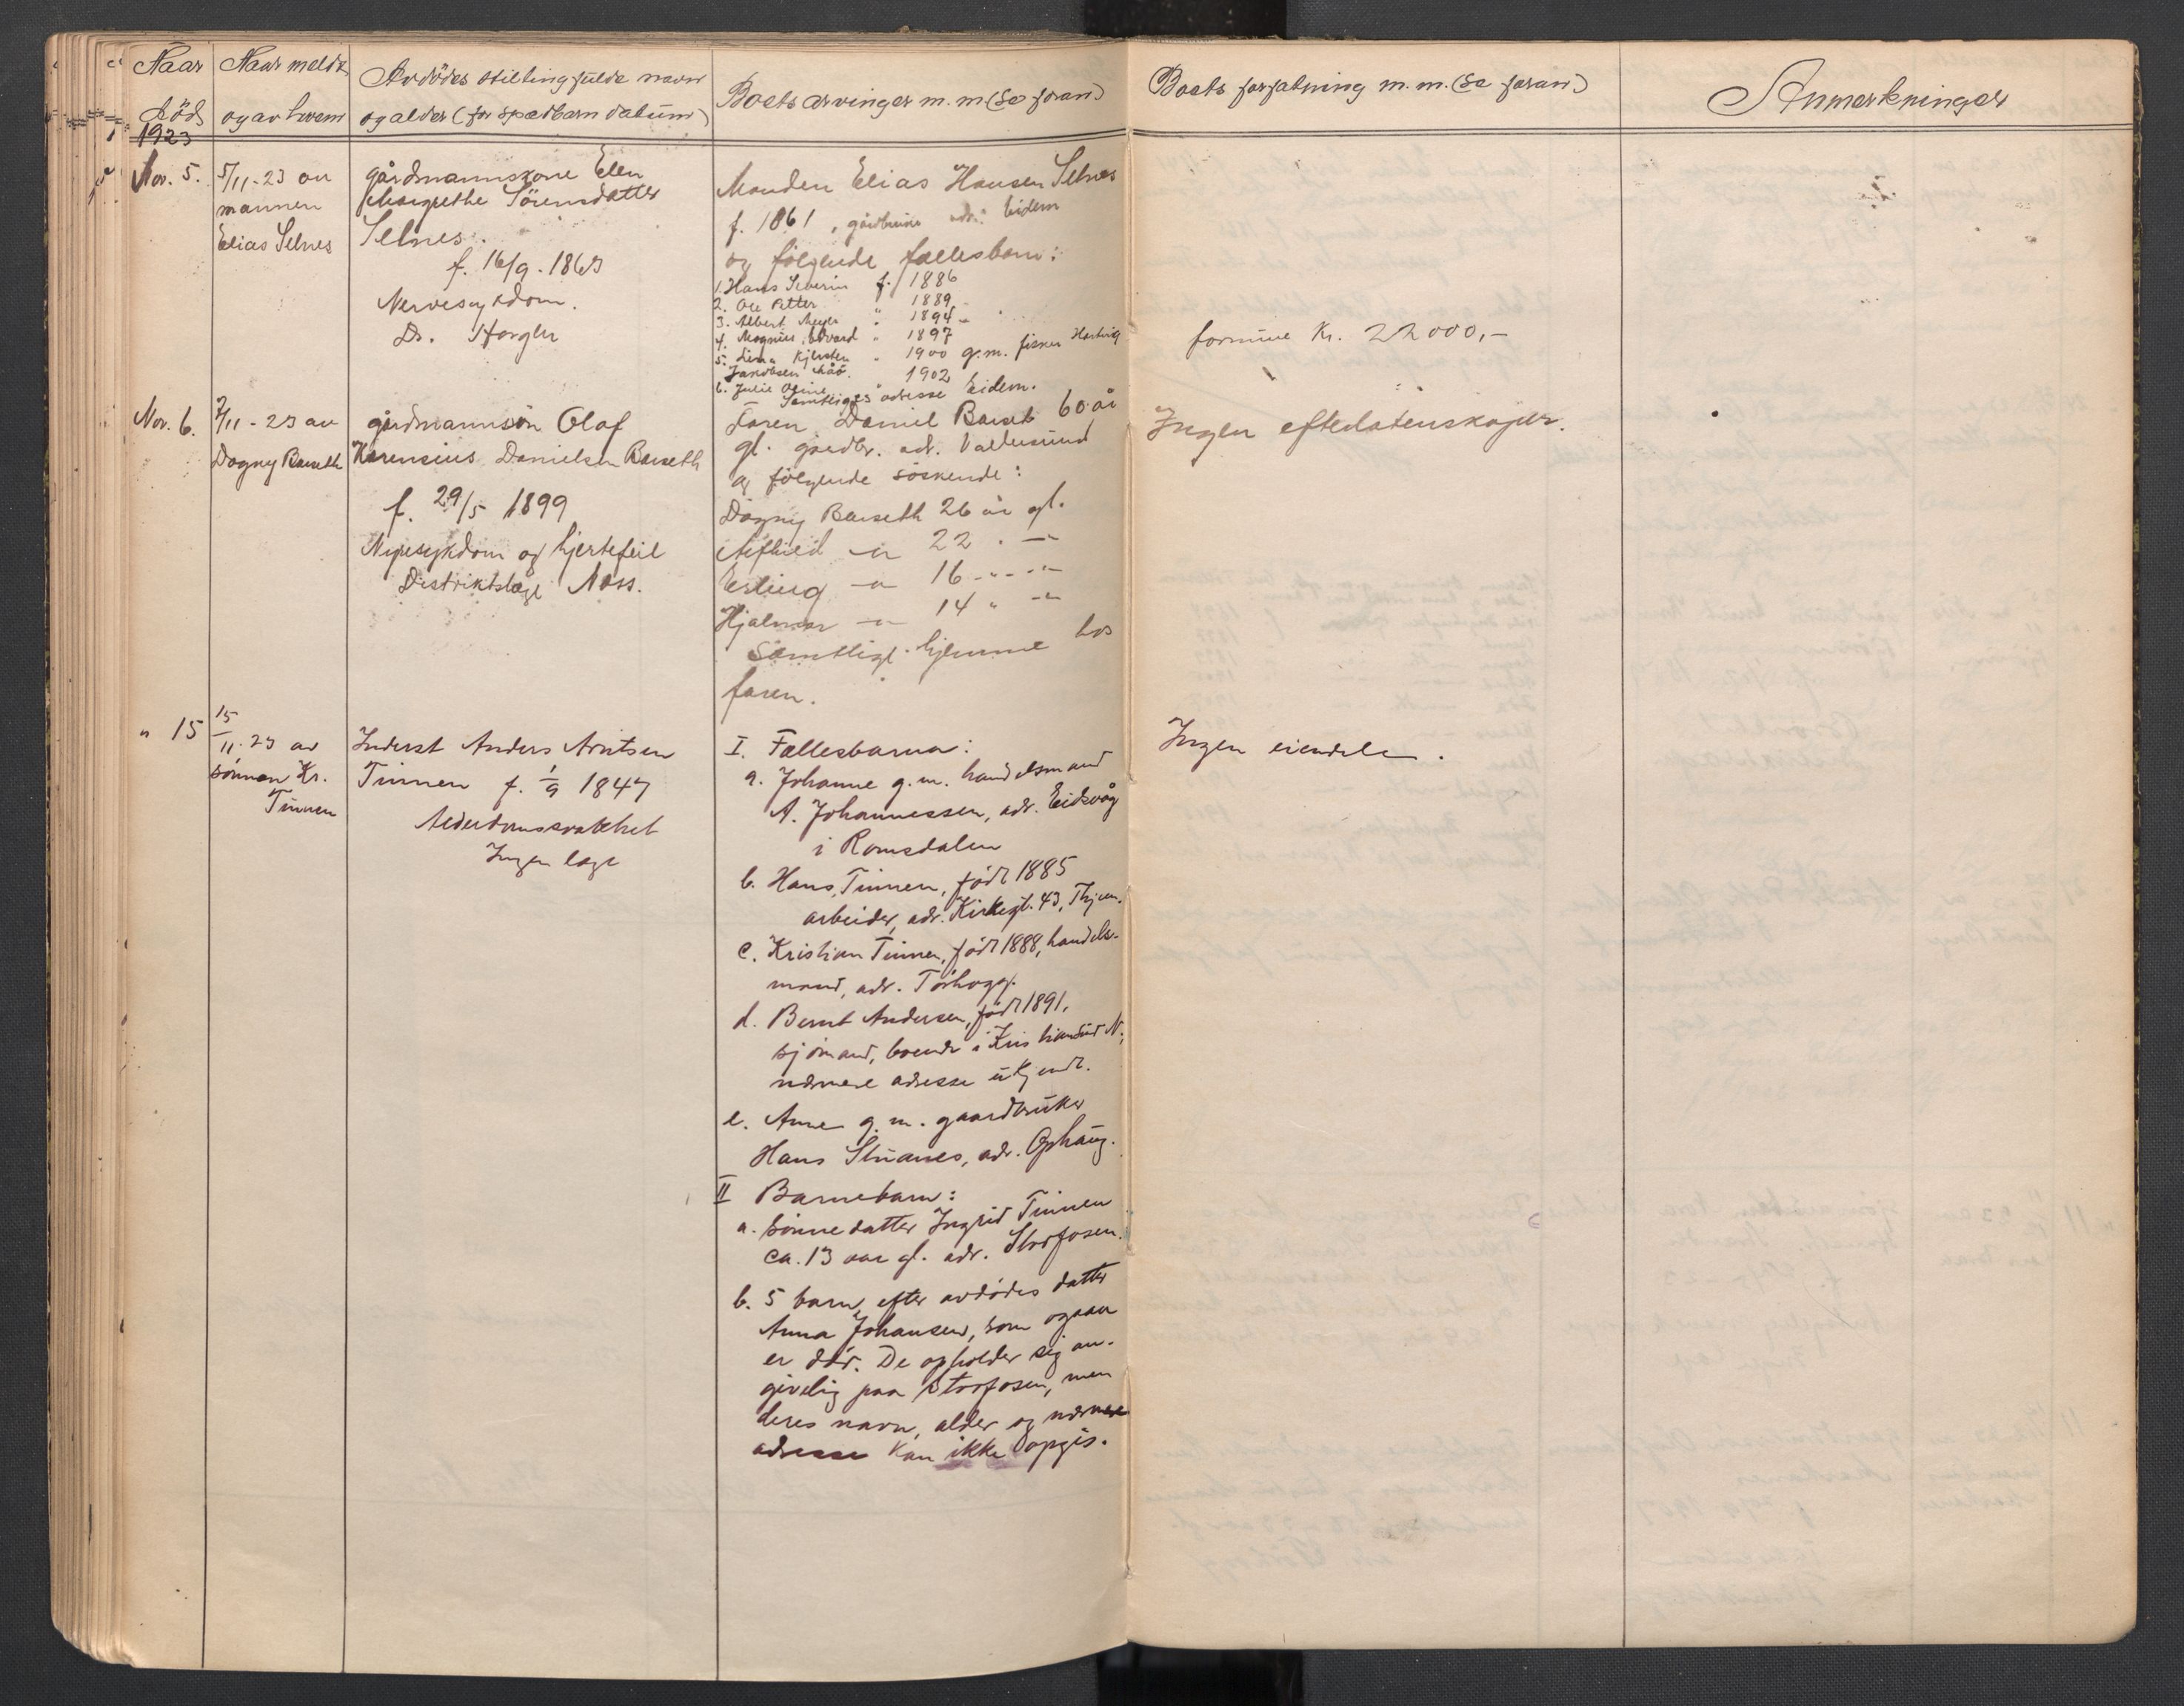 Naar
död
1923
Naar meldt
og av hvem
Avdödes stilling fulde navn
og alder (for spædbarn datum)
Boets arvinger m.m (Se foran)
Boets forfatning m.m. (Se foran)
Anmerkninger
Nov. 5.
5/11-23 av
mannen
Elias Selnes
gårdmannskone Elen
Margrethe Sörensdatter
Selnes.
f. 16/9. 1863
Nervesykdom.
Dr.
Manden Elias Hansen Selnes
f. 1861, gårdbruker adr: Eidem
og følgende fællesbarn:
1. Hans Severin f. 1886
2. Ole Petter " 1889
3. Albert Meyer " 1894
4. Magnus Edvard " 1897
5. Lina Kjersten " 1900 g.m. fisker Hartvig
Jakobsen
6. Julie Oline " 1902
Samtliges adresse Eidem.
formue Kr. 22000,-
Nov. 6.
7/11-23 av
Dagny Barseth
gårdmannsön Olaf
Karensius Danielsen Barseth
f. 29/5 1899
Nyresykdom og hjertefeil
Distriktslæge Næss.
Faren Daniel Barset 60 år
gl. gaardbr. adr. Vallersund
og følgende söskende:
Dagny Barseth 26 år gl.
22 " -"-
Erling -"- 16 -"- -"-
Hjalmar -"- 14 " -"-
Samtlige hjemme hos
faren.
Ingen efterlatenskaper.
" 15
15/11-23 av
sönnen Kr.
Tinnen
Inderst Anders Arntsen
Tinnen f. 1/9 1847
Alderdomssvakhet
Ingen læge
I. Fællesbarna:
a. Johanne g.m. handelsmand
A. Johannessen, adr. Eidsvåg
i Romsdalen
b. Hans Tinnen, född 1885
arbeider, adr. Kirkegt. 43, Thjem.
c. Kristian Tinnen, född 1888, handels-
mand, adr. Tørhogg.
d. Bernt Andersen, född 1891,
sjömand, boende i Kristiansund N.,
nærmere adresse ukjendt.
e. Anne g.m. gaardbruker
Hans Stuanes, adr. Ophaug.
II Barnebarn:
a. sönnedatter Ingrid Tinnen
ca. 13 aar gl. adr. Storfosen.
b. 5 barn efter avdödes datter
Anna Johansen, som ogsaa
er död. De opholder sig an-
givelig paa Storfosen, men
deres navn, alder og nærmere
adresse kan ikke opgis.
Ingen eiendele.